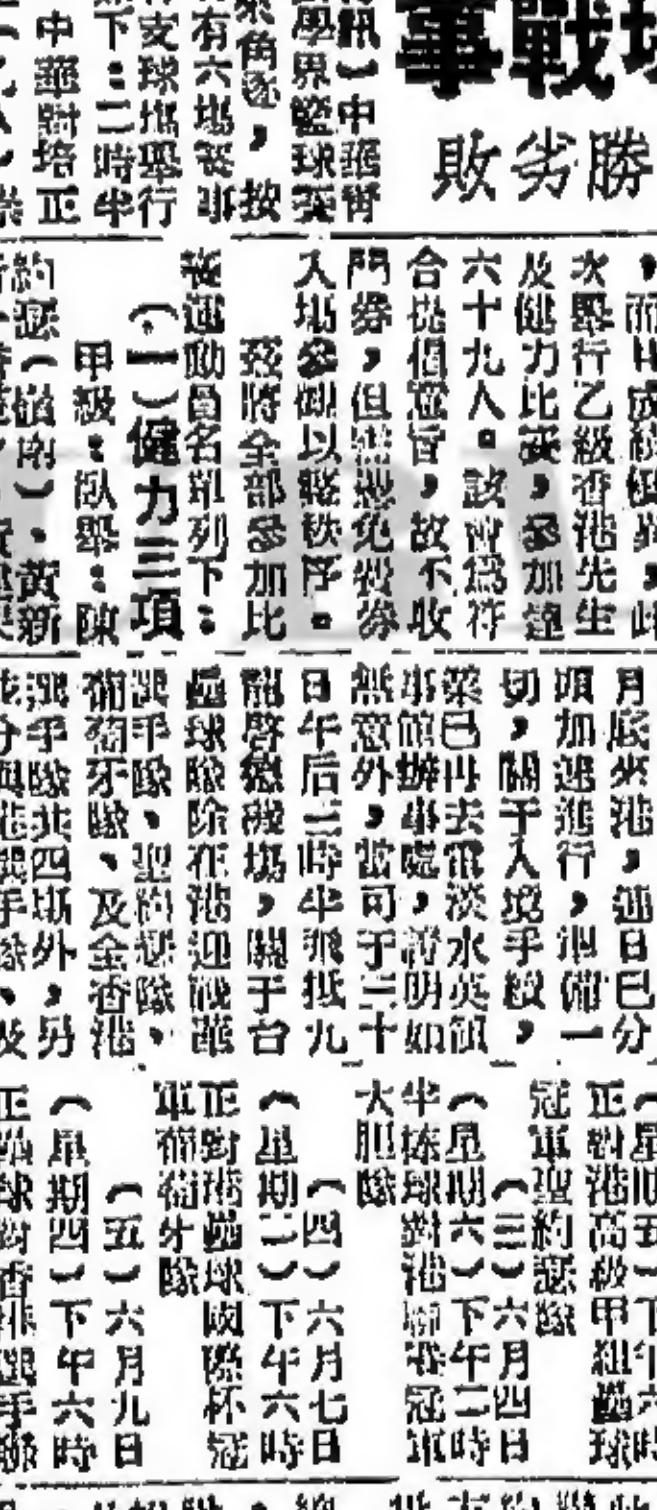 球戰事
勝劣敗
訊）中華青
學界籃球賽
聚角逐，按
有六場賽事
支球場舉行
下：二時半
中華對培正
次舉行乙級香港先生
及健力比賽，參加達
六十九人。該會爲符
合提倡意旨，故不收
門券，但無票免費券
入場參觀以維秩序。
茲將全部參加比
賽運動員名單列下：
（一）健力三項
甲級：臥舉：陳
月底來港，連日已分
頭加速進行，準備一
切，關于入境手續，
業已再去電淡水英領
事館辦事處，證明如
無意外，當可于三十
日午后三時半飛抵九
龍啓德機塲，關于台
壘球隊除在港迎戰華
選手隊、聖約瑟隊、
葡萄牙隊、及全香港
選手隊共四塲外，另
（星期五）下午六時
正對港高級甲組壘球
冠軍聖約瑟隊
（三）六月四日
（星期六）下午二時
半棒球對港聯賽冠軍
大胆隊
（四）六月七日
（星期二）下午六時
正對港壘球國際杯冠
軍葡萄牙隊
（五）六月九日
（星期四）下午六時
正壘球對香港選手聯